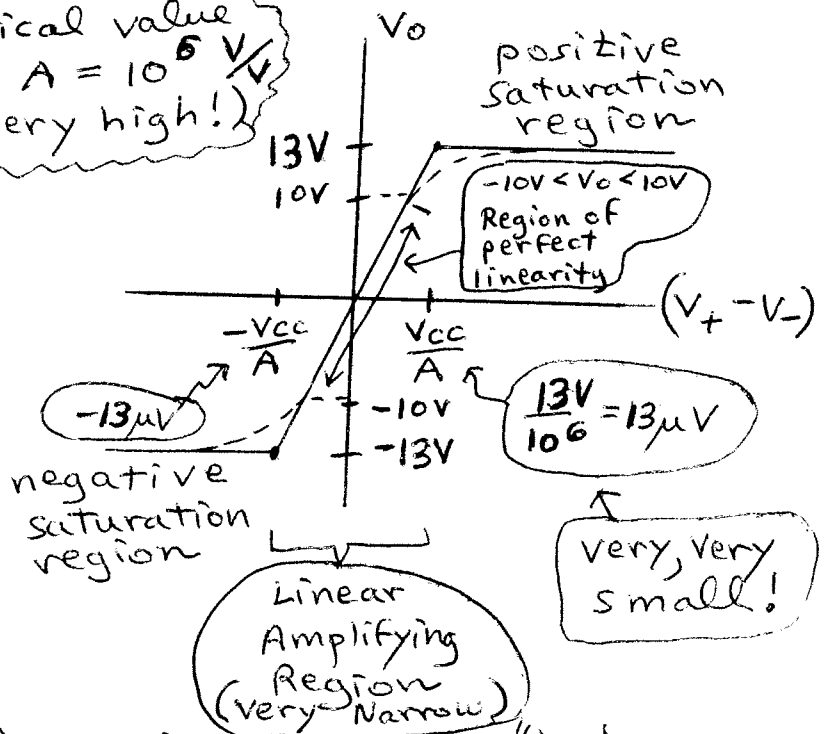 ical value
A = 10⁶ V/V
ery high!)
Vo
positive
saturation
region
13V
10V
-10V < Vo < 10V
Region of
perfect
linearity
(V₊ - V₋)
-Vcc/A
Vcc/A
-13μV
13V/10⁶ = 13μV
-10V
-13V
negative
saturation
region
very, very
small!
Linear
Amplifying
Region
(Very Narrow)